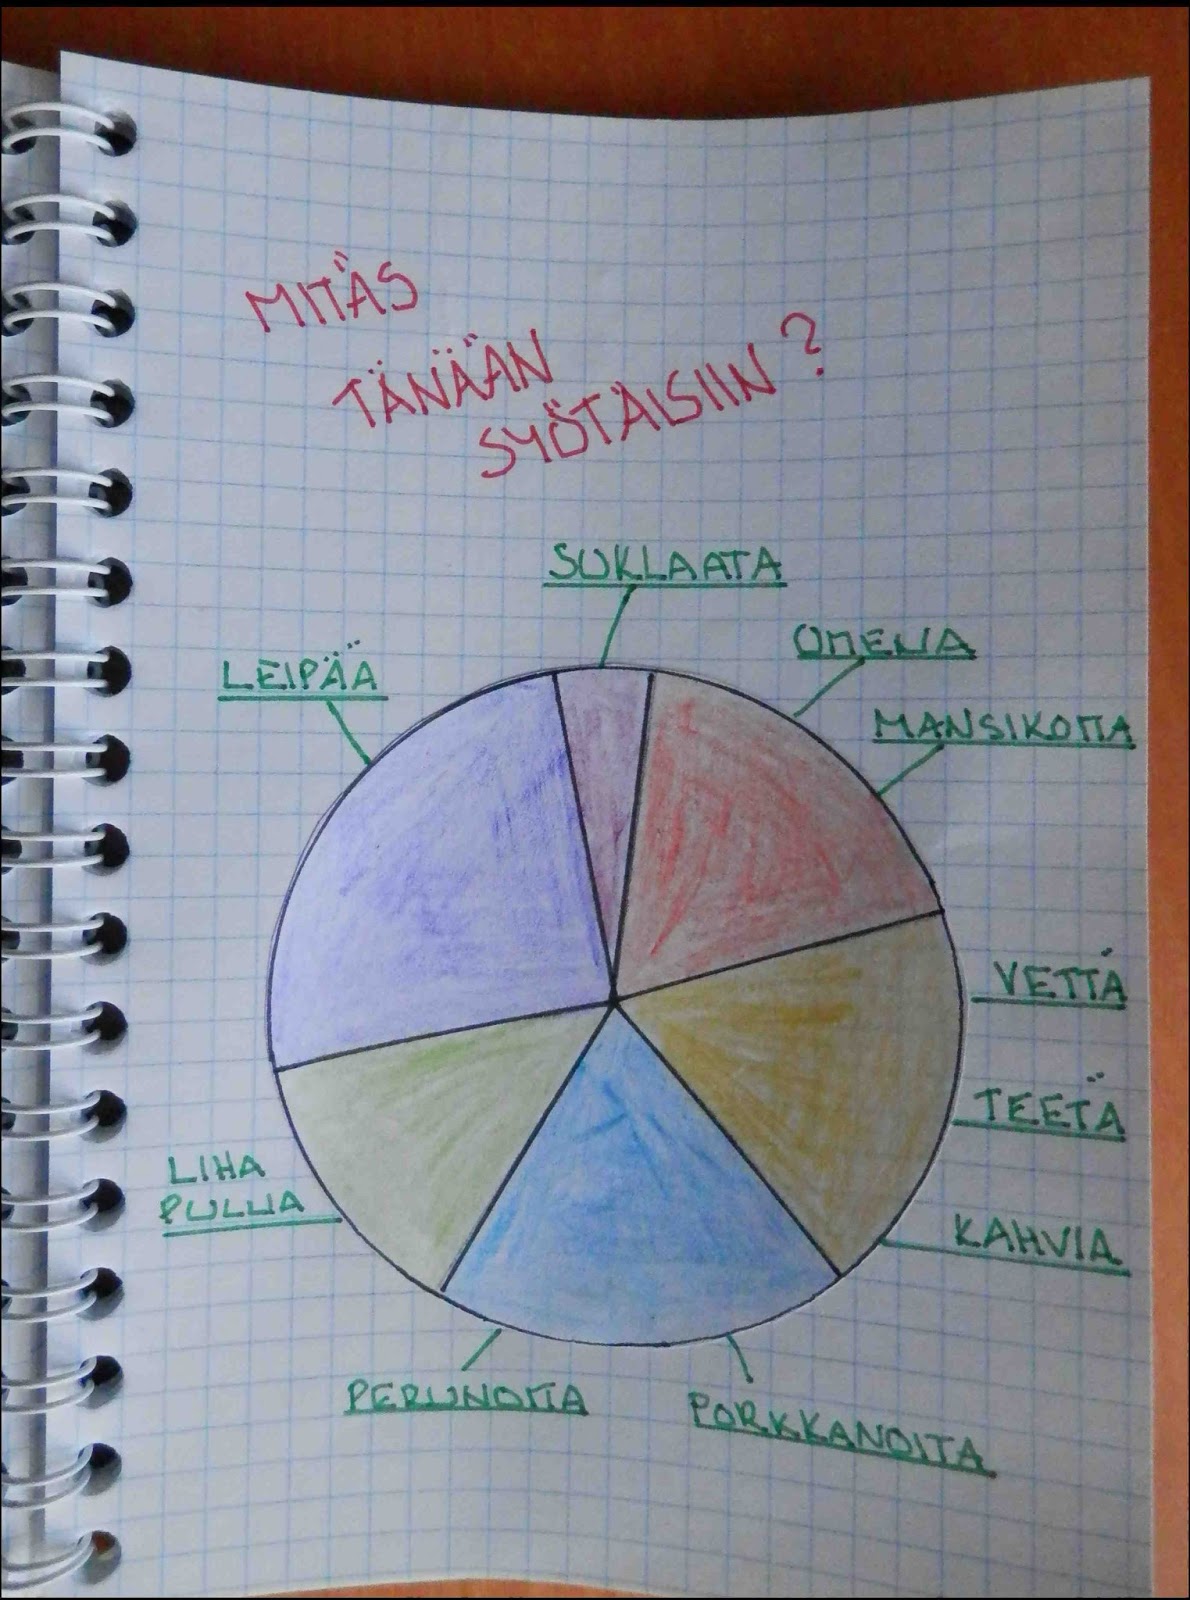 MITÄS
TÄNÄÄN
SYÖTÄISIIN?
SUKLAATA
OMENA
LEIPÄÄ
MANSIKOITA
VETTÄ
TEETÄ
LIHA
PULLIA
KAHVIA
PERUNOITA
PORKKANOITA